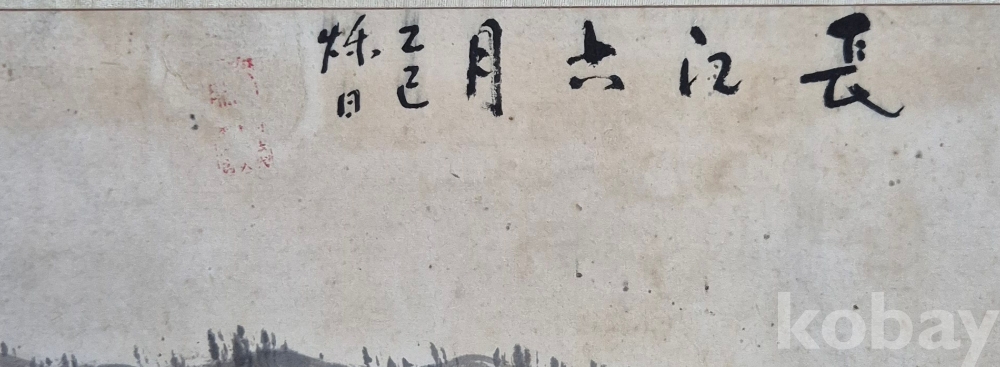 長江六月
乙巳
烁日
kobay